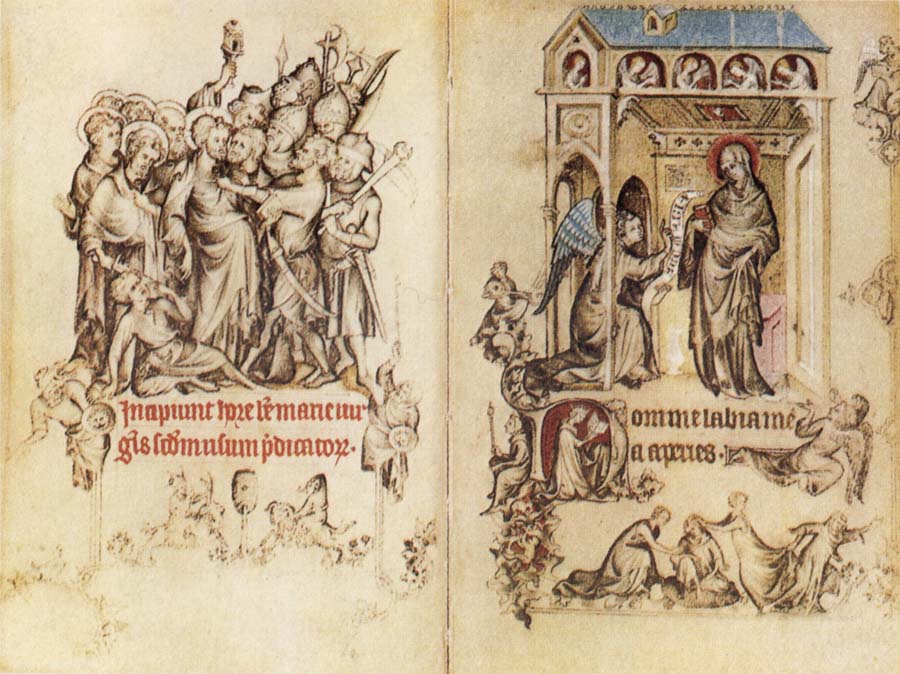 Incipiunt hore bẽ marie uir
gĩs scďm usum p̃dicatoꝝ.
Domine labia me
a aperies.